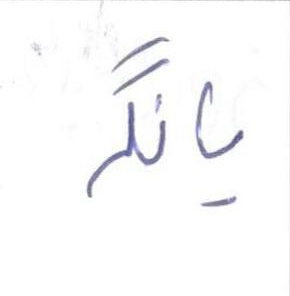 یانگر